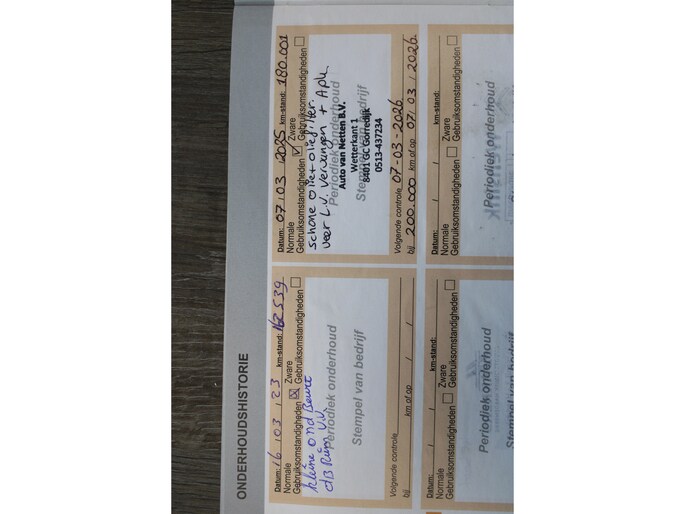 ONDERHOUDSHISTORIE
Datum: 16 / 03 / 23 km-stand: 162539
Normale Zware
Gebruiksomstandigheden ☒ Gebruiksomstandigheden ☐
kleine ond Beurt
Periodiek onderhoud
Stempel van bedrijf
Volgende controle
bij km of op / /
Datum: 07 / 03 / 2025 km-stand: 180.001
Normale Zware
Gebruiksomstandigheden ☑ Gebruiksomstandigheden ☐
schone olie + oliefilter.
veer L.V. Vervangen + Apk.
Periodiek onderhoud
Auto van Netten B.V.
Stempel van bedrijf
Wetterkant 1
8401 GC Gorredijk
0513-437234
Volgende controle 07-03-2026
bij 200.000 km of op 07 / 03 / 2026
Datum: / / km-stand:
Normale Zware
Gebruiksomstandigheden ☐ Gebruiksomstandigheden ☐
Periodiek onderhoud
Stempel van bedrijf
Datum: / / km-stand:
Normale Zware
Gebruiksomstandigheden ☐ Gebruiksomstandigheden ☐
Periodiek onderhoud